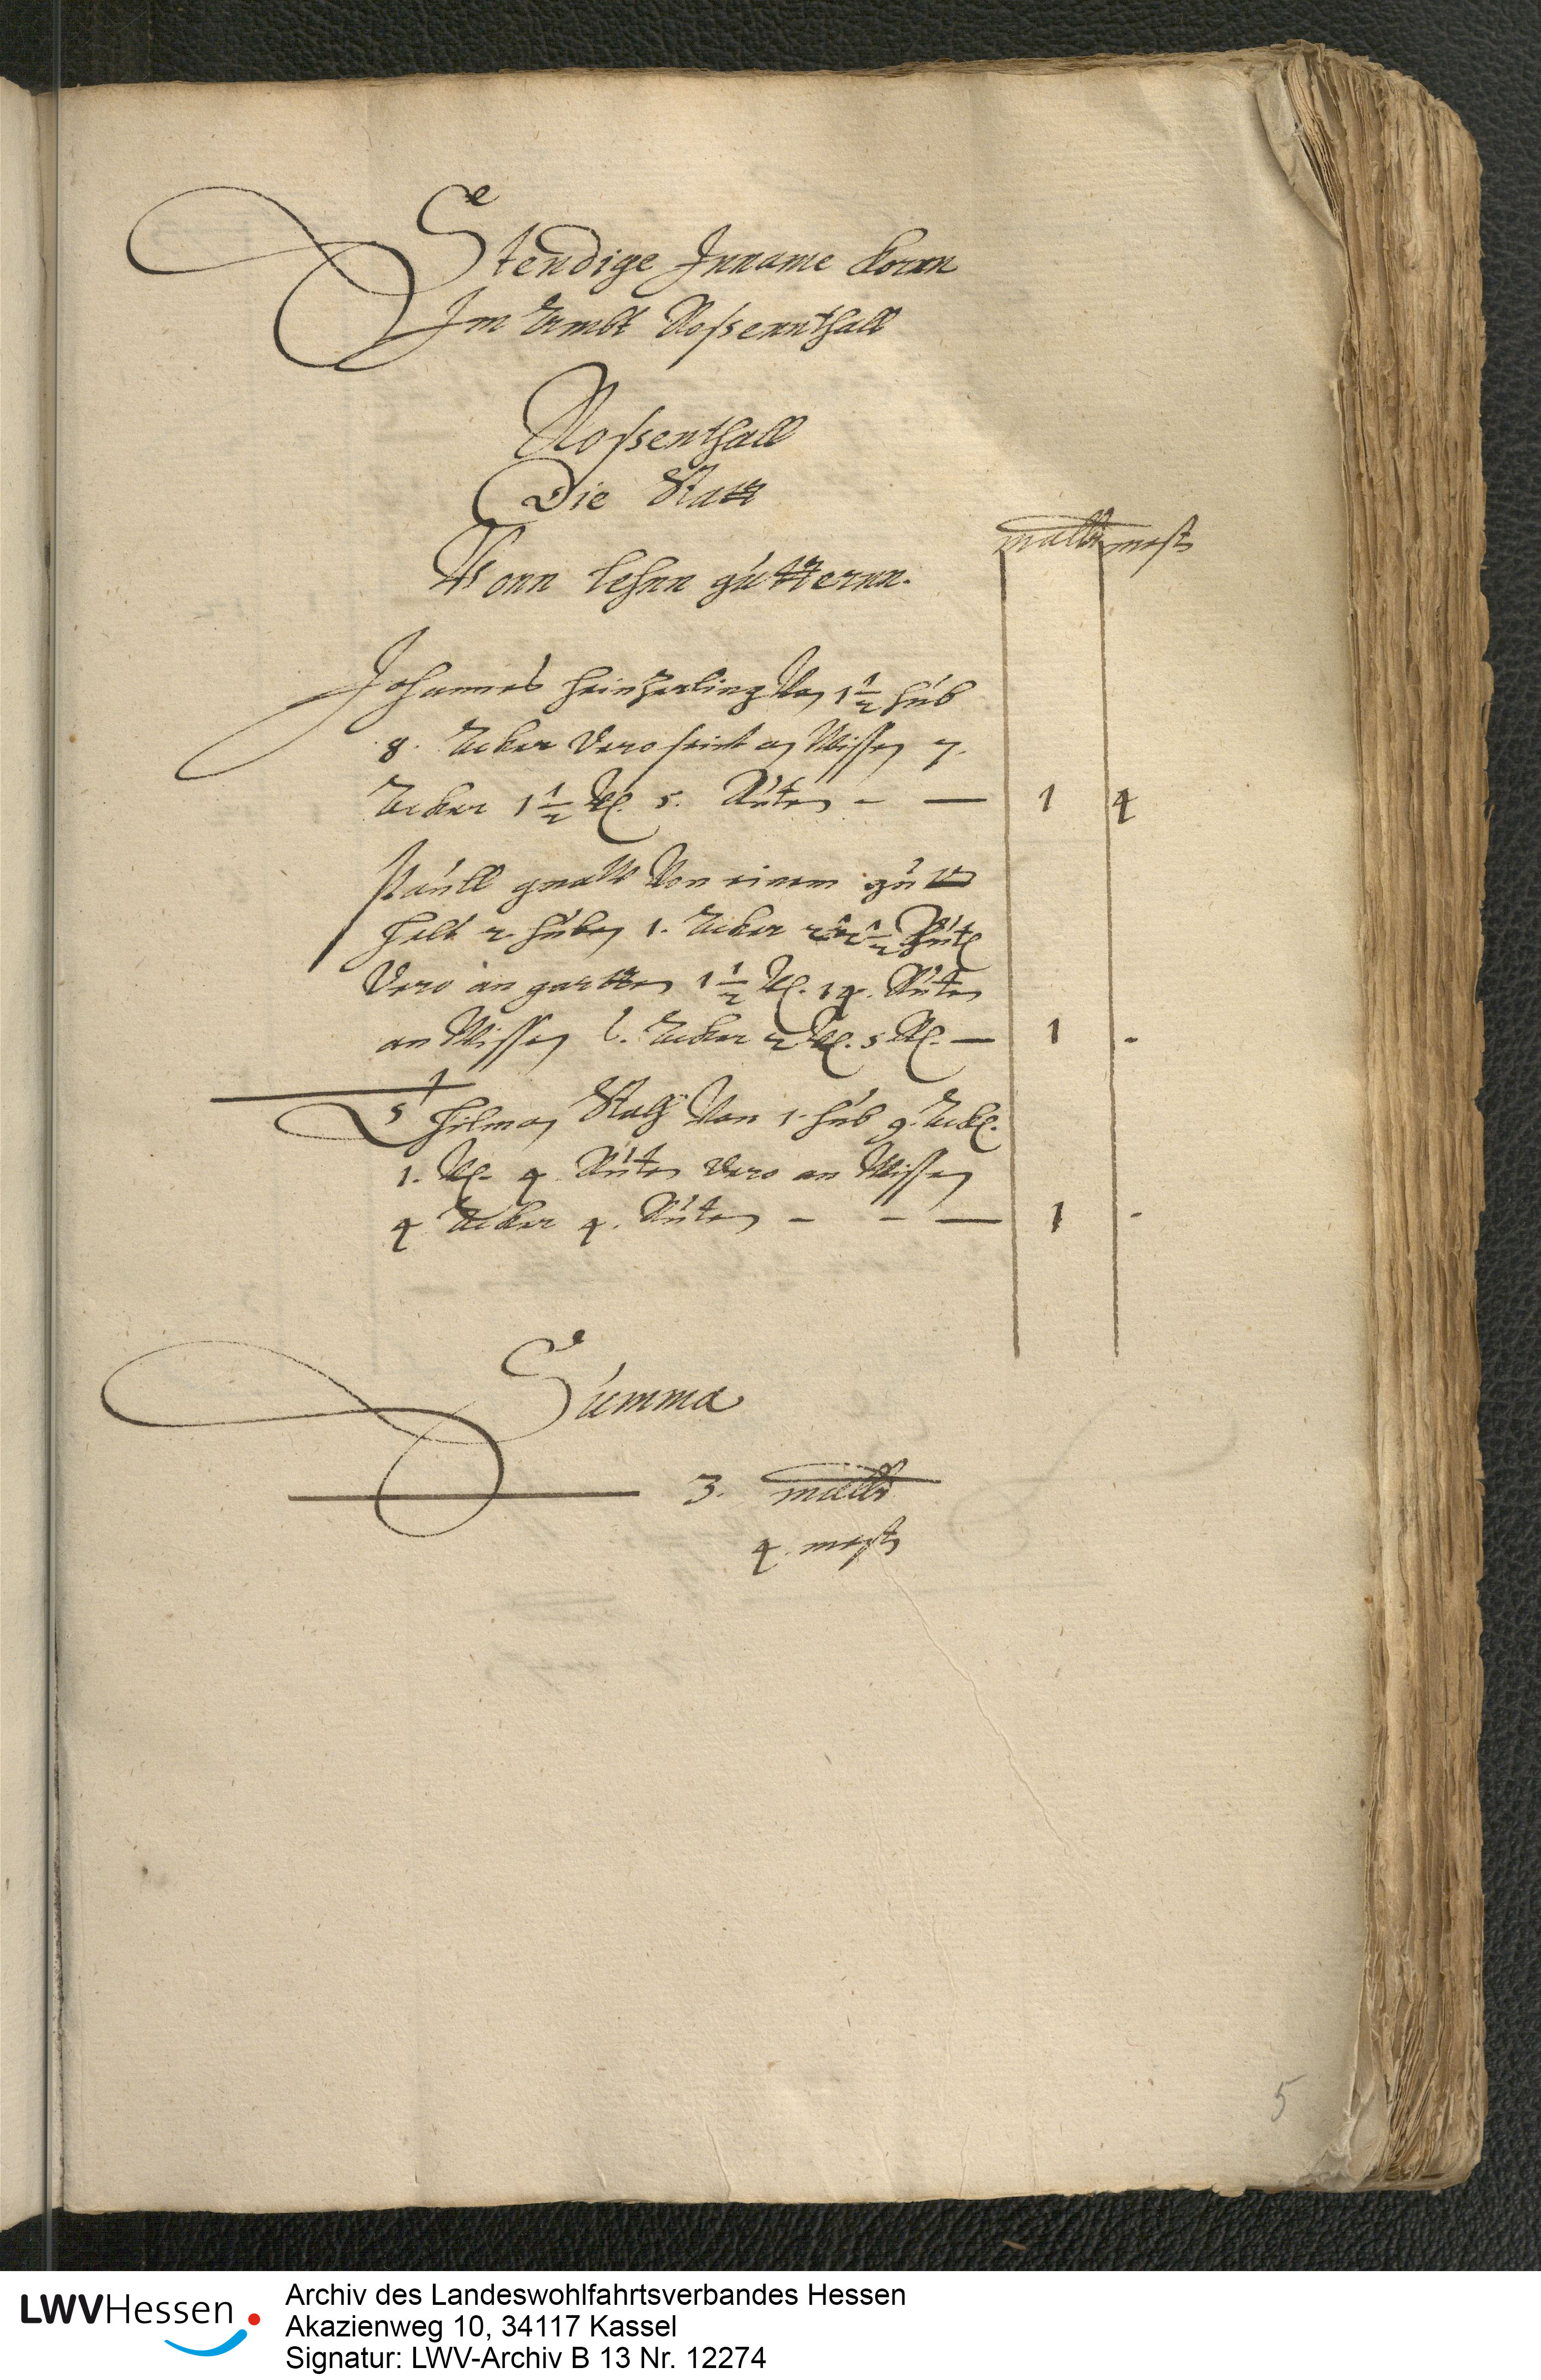 Stendige Inname Korn
Im Ambt Rossennthall
Rossenthall
Die Statt
Vonn lehnn gütternn.
malter mest
Johannes heintzerling von 1 1/2 hub
8. Acker Vero seint an Wissen 7.
Acker 1 1/2 5. Ruten - — 1 4
Paull von einem gutt
helt 2 huben 1. Acker
Vero an gartten 1 1/2 14. Ruten
an Wissen 6. Acker 2 5 — 1 -
von 1. hub 9. Ack.
1. 4. Ruten Vero an Wissen
4 Acker 4. Ruten - - — 1 -
Summa
3. malter
4. mest
5
LWVHessen
Archiv des Landeswohlfahrtsverbandes Hessen
Akazienweg 10, 34117 Kassel
Signatur: LWV-Archiv B 13 Nr. 12274